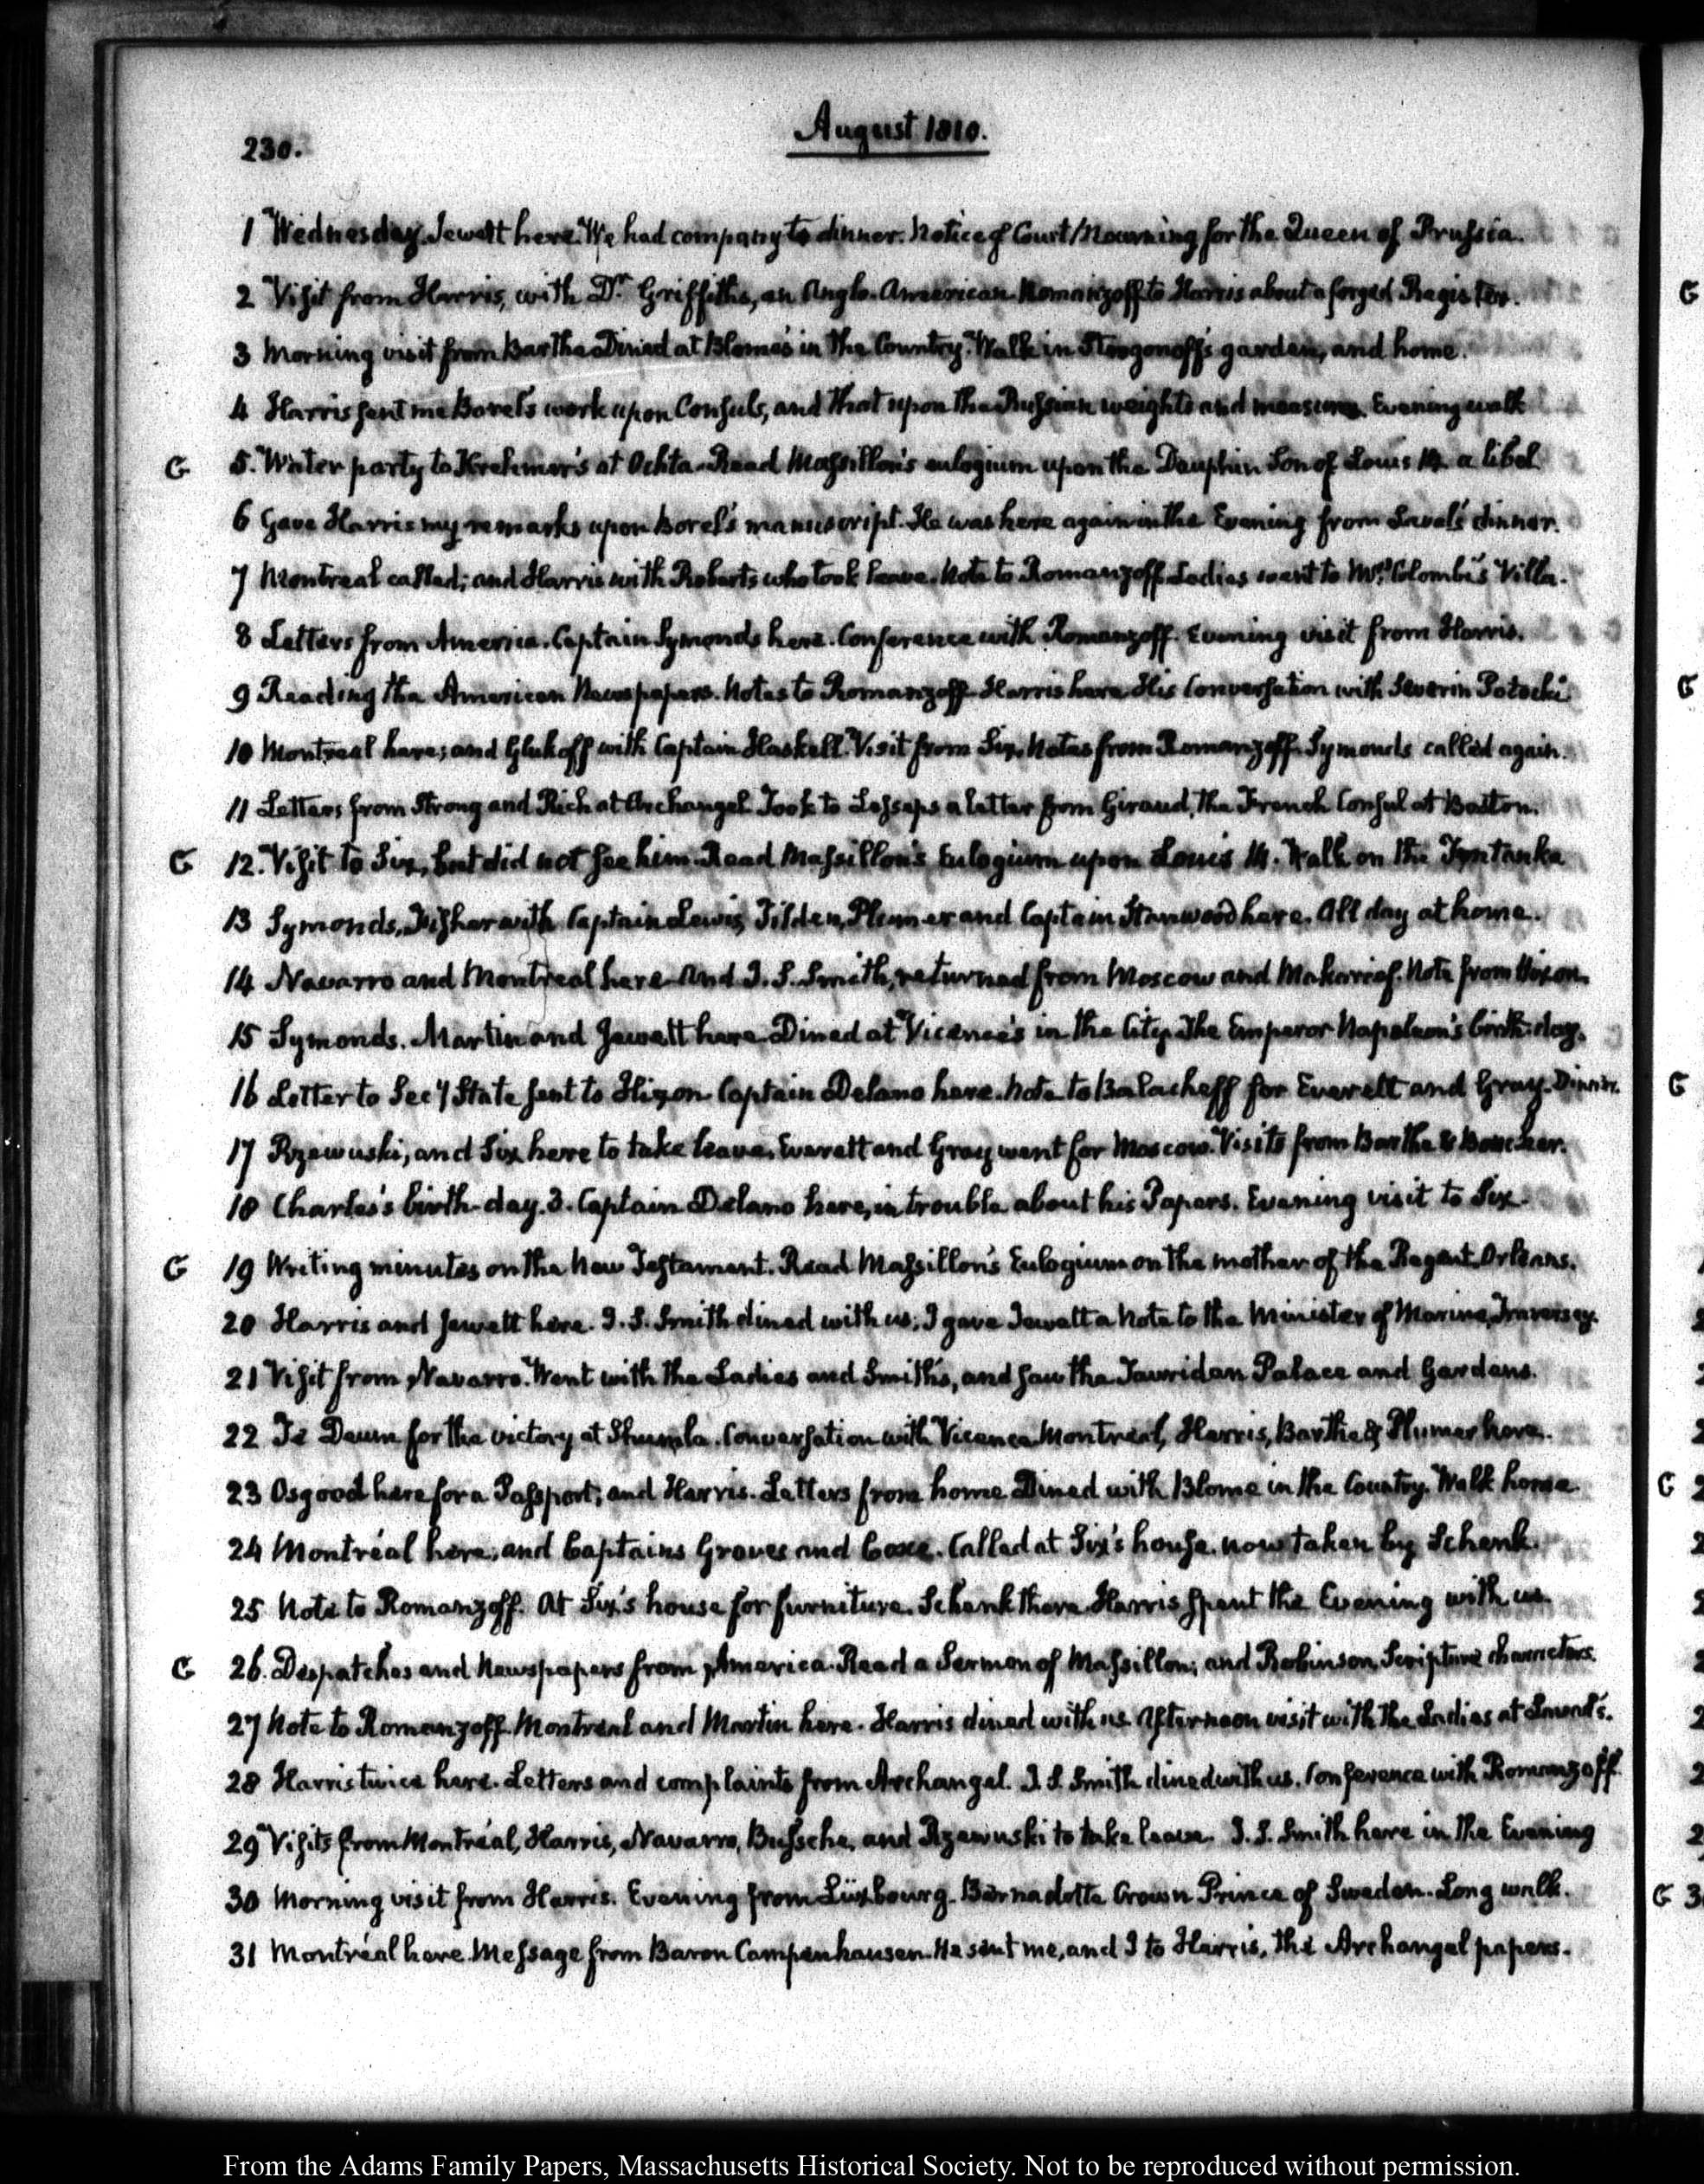 230.
August 1810.
1 Wednesday. Jewett here. We had company to dinner. Notice of Court Mourning for the Queen of Prussia.
2 Visit from Harris, with Dr. Griffiths, an Anglo-American. Romanzoff to Harris about a forged Register.
3 Morning visit from Barthe. Dined at Blome's in the Country. Walk in Strogonoff's garden, and home.
4 Harris sent me Borel's work upon Consuls, and that upon the Russian weights and measures. Evening walk
G 5. Water party to Krehmer's at Ochta. Read Massillon's eulogium upon the Dauphin Son of Louis 14. a libel
6 Gave Harris my remarks upon Borel's manuscript. He was here again in the Evening from Laval's dinner.
7 Montreal called; and Harris with Roberts who took leave. Note to Romanzoff. Ladies went to Mrs. Colombi's Villa.
8 Letters from America. Captain Symonds here. Conference with Romanzoff. Evening visit from Harris.
9 Reading the American Newspapers. Notes to Romanzoff. Harris here. His Conversation with Severin Potocki.
10 Montreal here; and Glukoff with Captain Haskell. Visit from Six. Notes from Romanzoff. Symonds called again.
11 Letters from Strong and Rich at Archangel. Took to Lesseps a letter from Giraud, the French Consul at Boston.
G 12. Visit to Six, but did not see him. Read Massillon's Eulogium upon Louis 14. Walk on the Fontanka
13 Symonds, Fisher with Captain Lewis, Tilden, Plummer and Captain Stanwood here. All day at home.
14 Navarro and Montreal here. And J. S. Smith, returned from Moscow and Makarief. Note from Hixon.
15 Symonds. Martin and Jewett here. Dined at Vicence's in the City. The Emperor Napoleon's birth-day.
16 Letter to Secy State sent to Hixon. Captain Delano here. Note to Balacheff for Everett and Gray. Dinner.
17 Rzewuski, and Six here to take leave. Everett and Gray went for Moscow. Visits from Barthe & Boucher.
18 Charles's birth-day. 3. Captain Delano here, in trouble about his Papers. Evening visit to Six.
G 19 Writing minutes on the New Testament. Read Massillon's Eulogium on the mother of the Regent Orleans.
20 Harris and Jewett here. J. S. Smith dined with us. I gave Jewett a Note to the Minister of Marine, Traversay.
21 Visit from Navarro. Went with the Ladies and Smiths, and saw the Tauridan Palace and Gardens.
22 Te Deum for the victory at Shumla. Conversation with Vicence. Montreal, Harris, Barthe & Plumer here.
23 Osgood here for a Passport; and Harris. Letters from home. Dined with Blome in the Country. Walk home.
24 Montréal here; and Captains Groves and Coxe. Called at Six's house, now taken by Schenk.
25 Note to Romanzoff. At Six's house for furniture. Schenk there. Harris spent the Evening with us.
G 26. Despatches and Newspapers from America. Read a Sermon of Massillon; and Robinson, Scripture characters.
27 Note to Romanzoff. Montreal and Martin here. Harris dined with us. Afternoon visit with the Ladies at
28 Harris twice here. Letters and complaints from Archangel. J. S. Smith dined with us. Conference with Romanzoff
29 Visits from Montréal, Harris, Navarro, Bussche, and Rzewuski to take leave. J. S. Smith here in the Evening
30 Morning visit from Harris. Evening from Lüxbourg. Bernadotte Crown Prince of Sweden. Long walk.
31 Montréal here. Message from Baron Campenhausen. He sent me, and I to Harris, the Archangel papers.
From the Adams Family Papers, Massachusetts Historical Society. Not to be reproduced without permission.